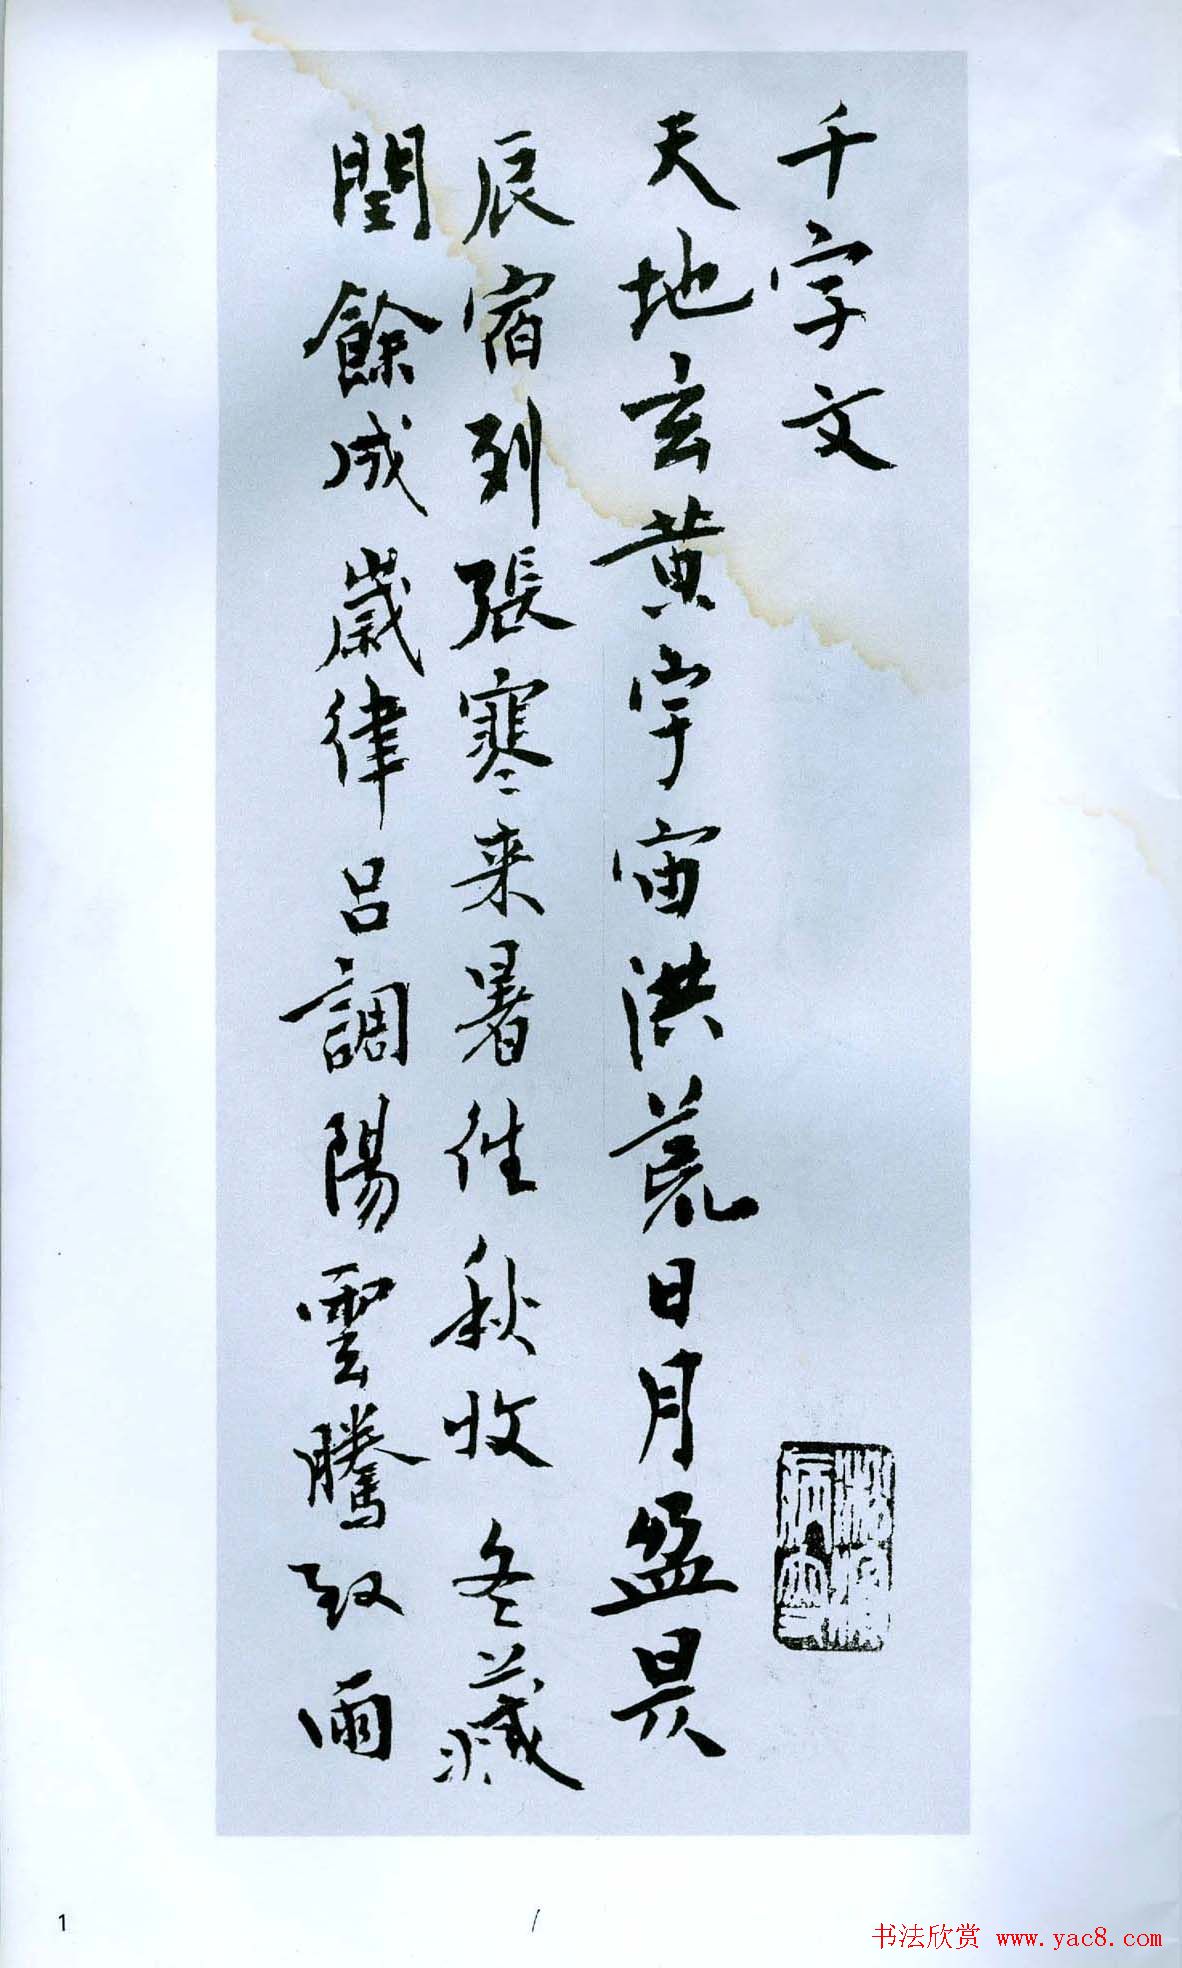 千字文
天地玄黄宇宙洪荒日月盈昃
辰宿列張寒来暑往秋收冬藏
閏餘成歲律吕調陽雲騰致雨
1
书法欣赏 www.yac8.com